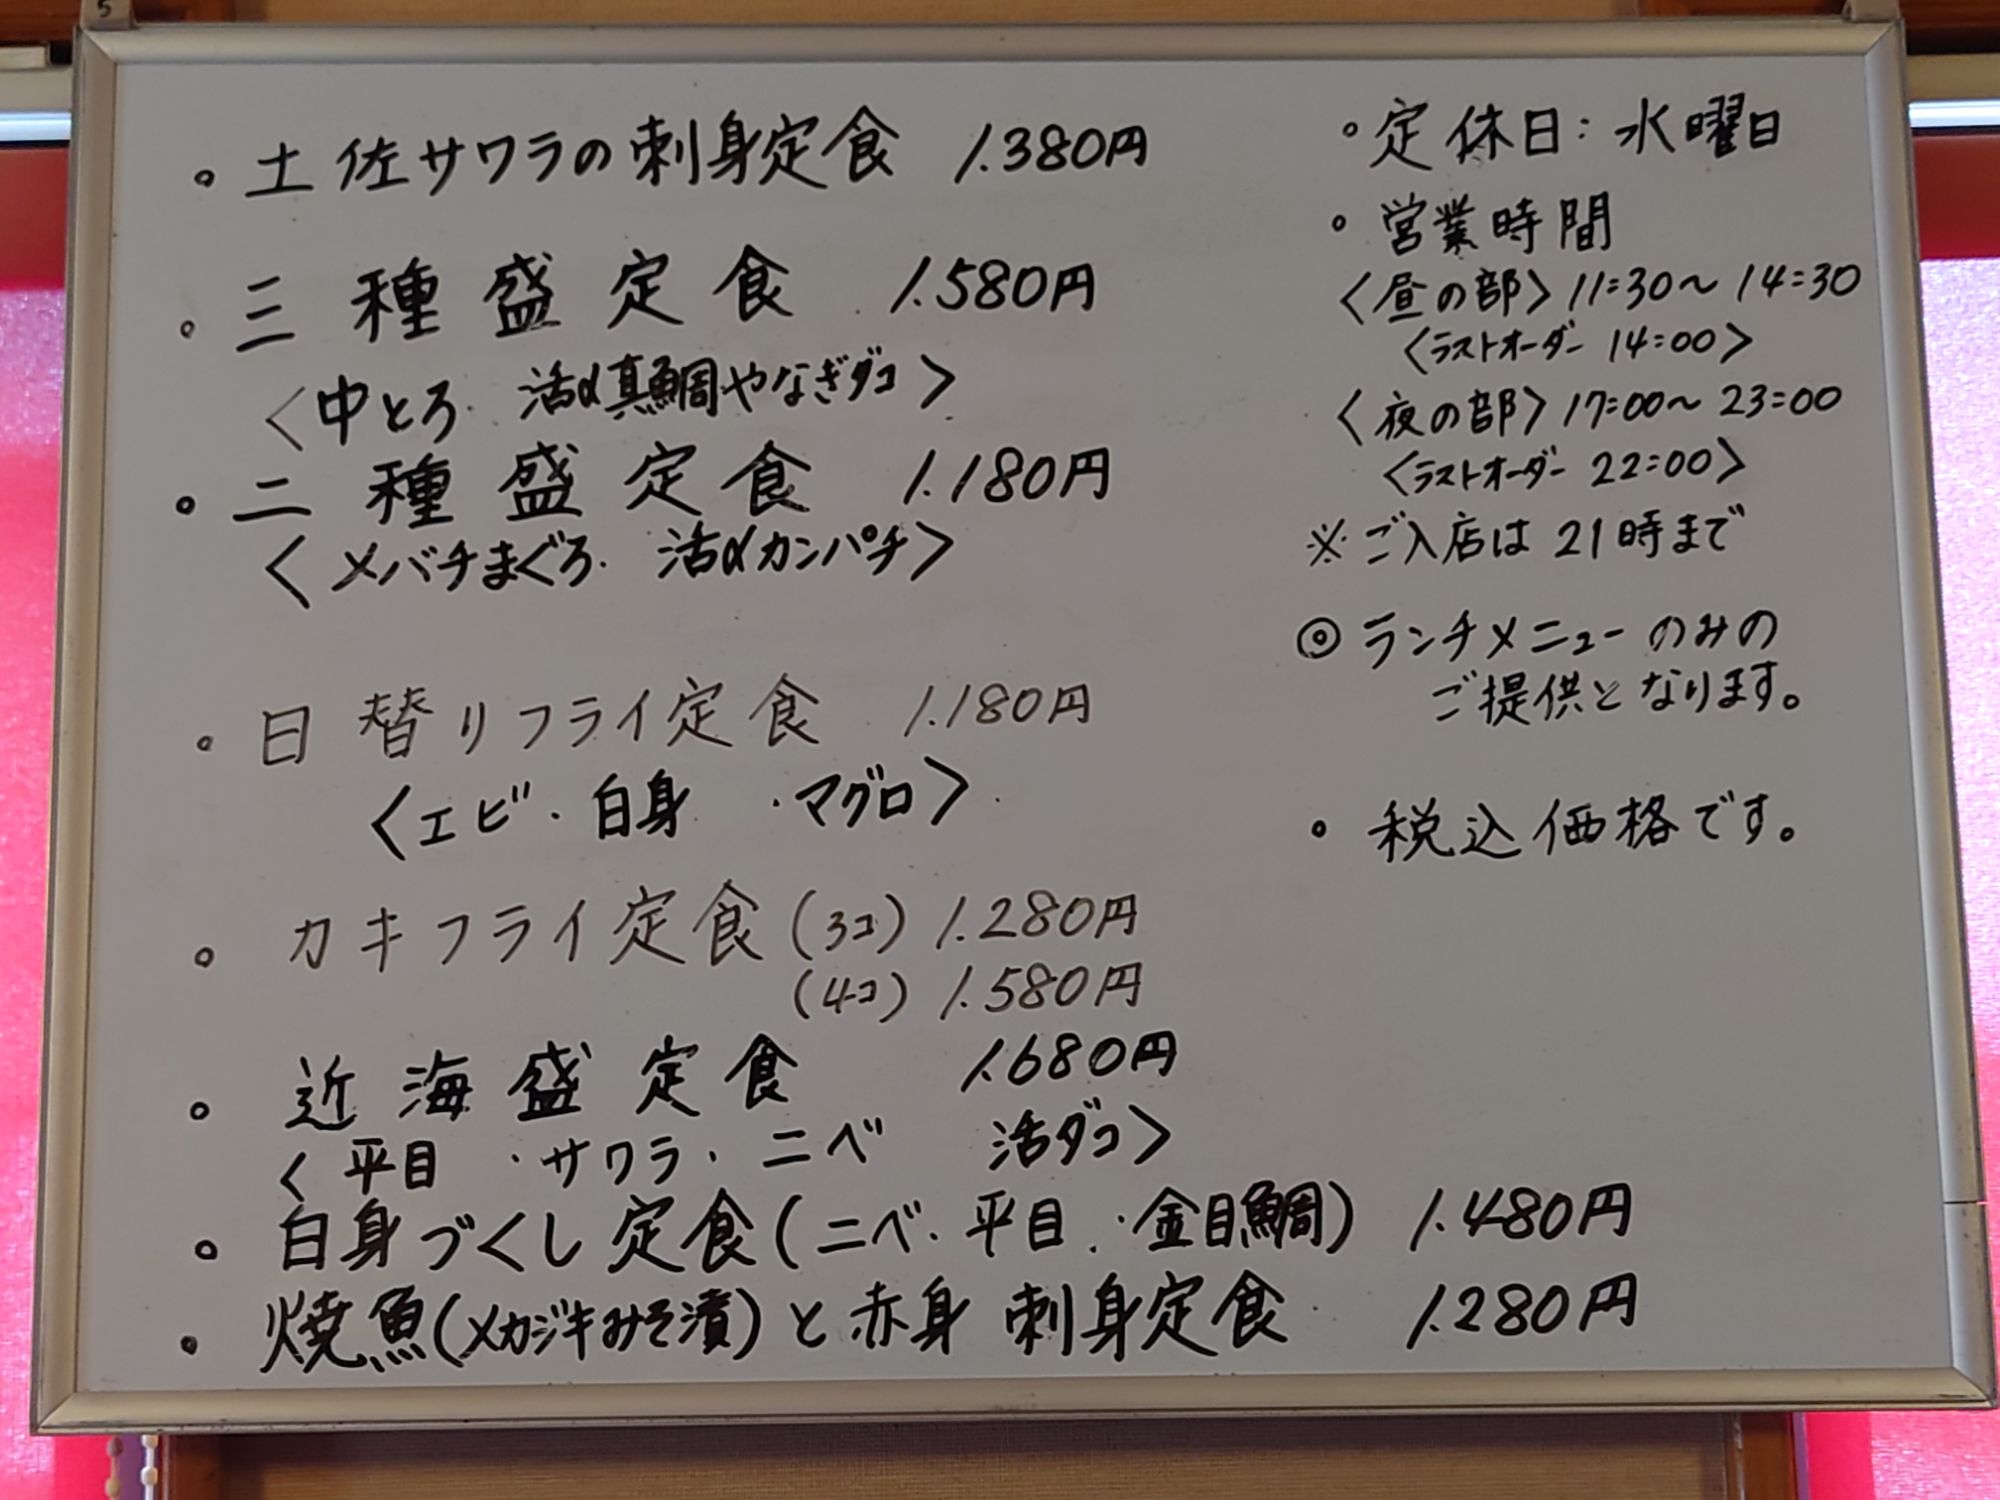 。土佐サワラの刺身定食 1.380円
。三種盛定食 1.580円
〈中とろ. 活〆真鯛やなぎダコ〉
。二種盛定食 1.180円
〈メバチまぐろ. 活〆カンパチ〉
。日替りフライ定食 1.180円
〈エビ・白身・マグロ〉
。カキフライ定食(3コ) 1.280円
(4コ) 1.580円
。近海盛定食 1.680円
〈平目・サワラ・ニベ 活ダコ〉
。白身づくし定食(ニベ・平目・金目鯛) 1.480円
。焼魚(メカジキみそ漬)と赤身刺身定食 1.280円
。定休日:水曜日
。営業時間
〈昼の部〉11:30〜14:30
〈ラストオーダー 14:00〉
〈夜の部〉17:00〜23:00
〈ラストオーダー 22:00〉
※ご入店は21時まで
◎ランチメニューのみの
ご提供となります。
。税込価格です。
5